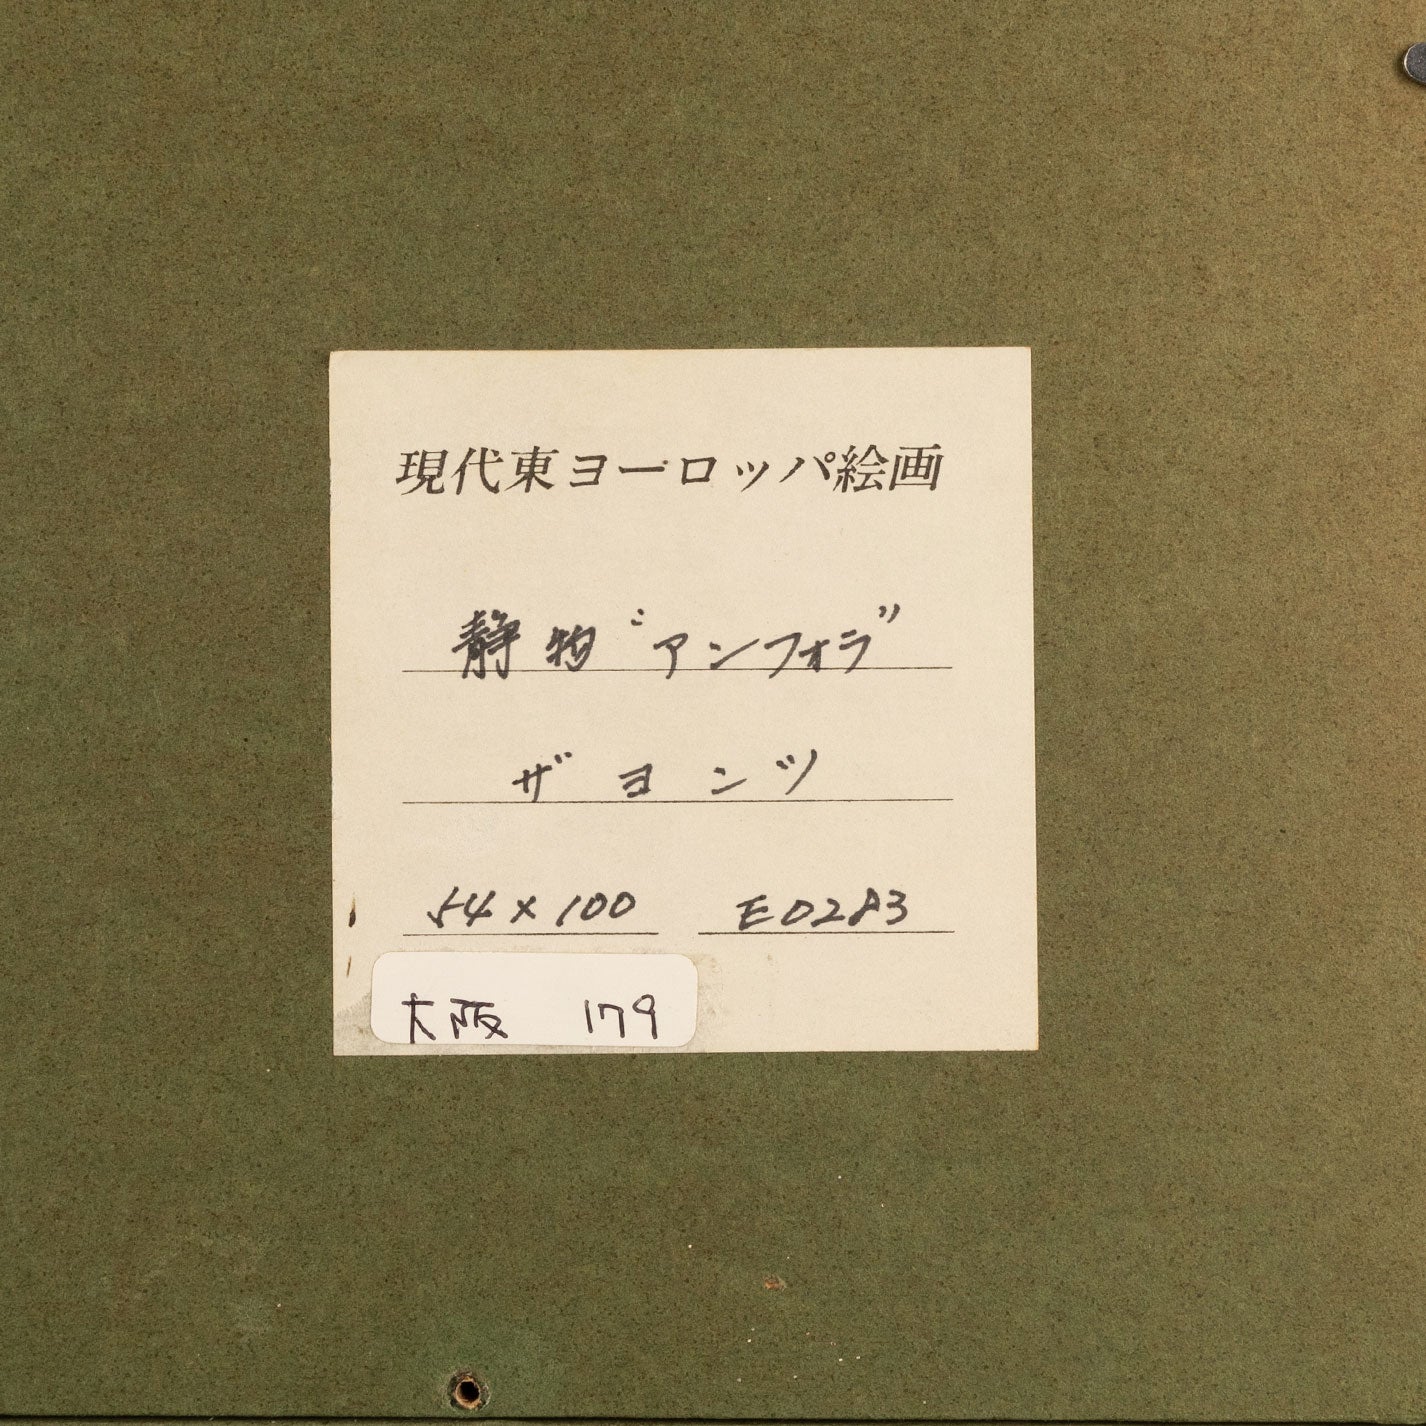 現代東ヨーロッパ絵画
静物“アンフォラ”
ザヨンツ
54×100 E0283
大阪 179